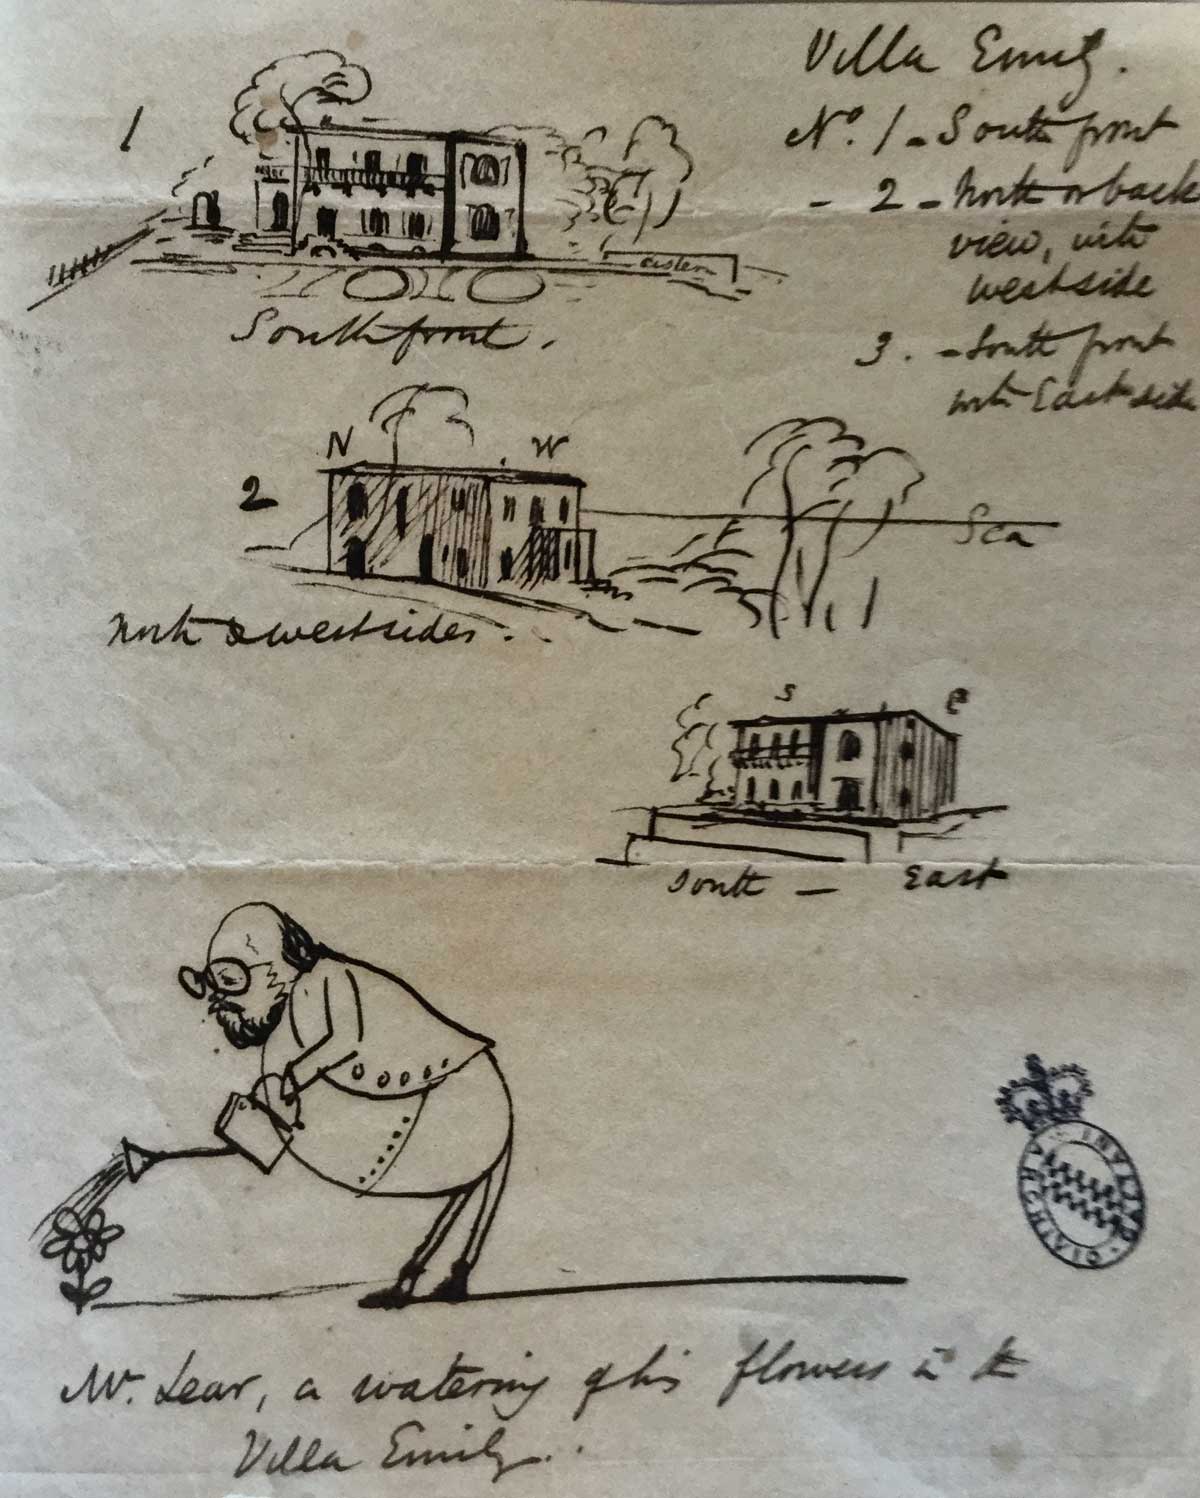 Villa Emily.
1
No. 1 - South front
- 2 - North or back
view, with
west side
cistern
South front.
3. - South front
with East side
N W
2
Sea
North & west sides.
S E
South - East
INVLIVD · ARCHIVIO ·
Mr. Lear, a watering of his flowers in the
Villa Emily.